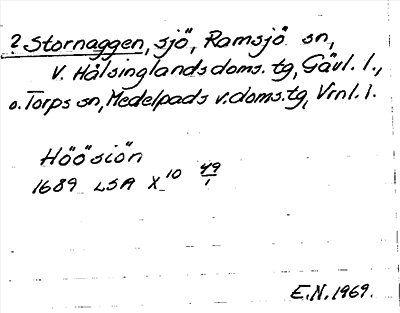 ? Stornaggen, sjö, Ramsjö sn,
V. Hälsinglands doms. tg, Gävl. l.,
o. Torps sn, Medelpads v. doms. tg, Vrnl. l.
Höösiön
1689 LSA X 10 49/1
E.N. 1969.